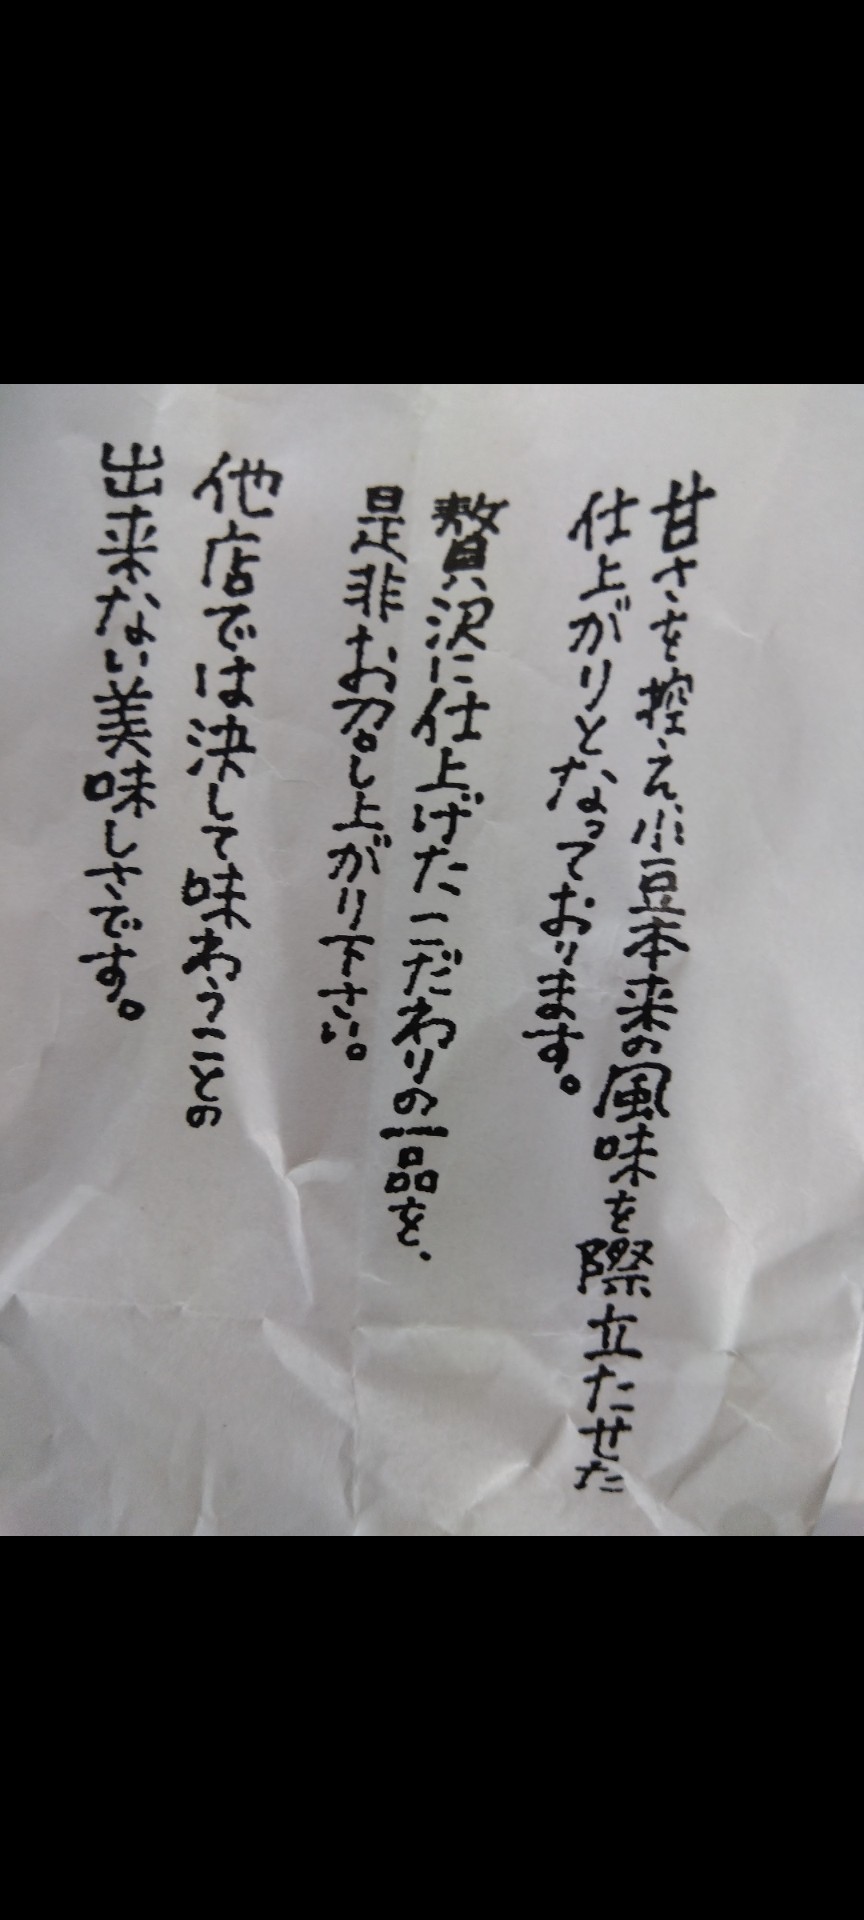 甘さを控え、小豆本来の風味を際立たせた
仕上がりとなっております。
贅沢に仕上げたこだわりの一品を、
是非お召し上がり下さい。
他店では決して味わうことの
出来ない美味しさです。